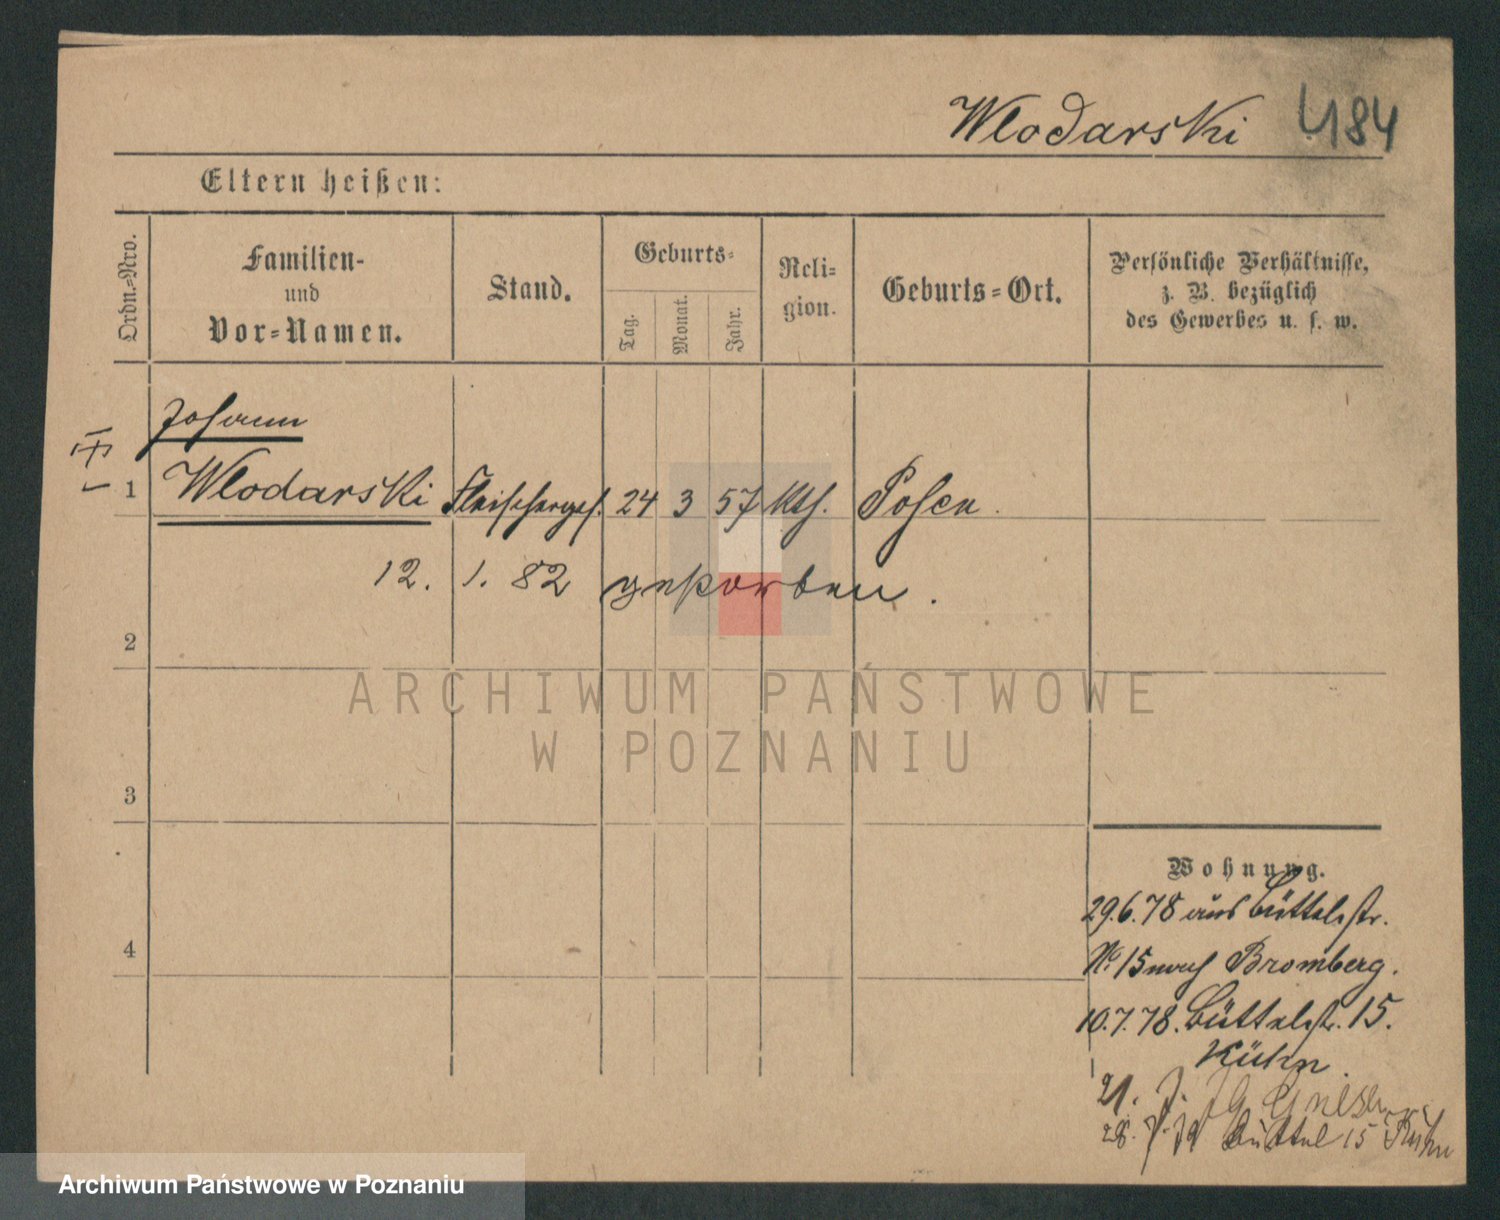 Wlodarski 484
Eltern heißen:
Ordn.-Nro.
Familien-
und
Vor-Namen.
Stand.
Geburts-
Tag.
Monat.
Jahr.
Reli-
gion.
Geburts-Ort.
Persönliche Verhältnisse,
z. B. bezüglich
des Gewerbes u. s. w.
Johann
1 Wlodarski Fleischerges. 24 3 57 kth. Posen.
12. 1. 82 gestorben.
2
ARCHIWUM PAŃSTWOWE
W POZNANIU
3
4
Wohnung.
29.6.78 aus Büttelstr.
No. 15 nach Bromberg.
10.7.78. Büttelstr. 15.
Kühn.
21. 7. 79 Gnesen
28. 7. 79 Büttel 15 Kühn
Archiwum Państwowe w Poznaniu